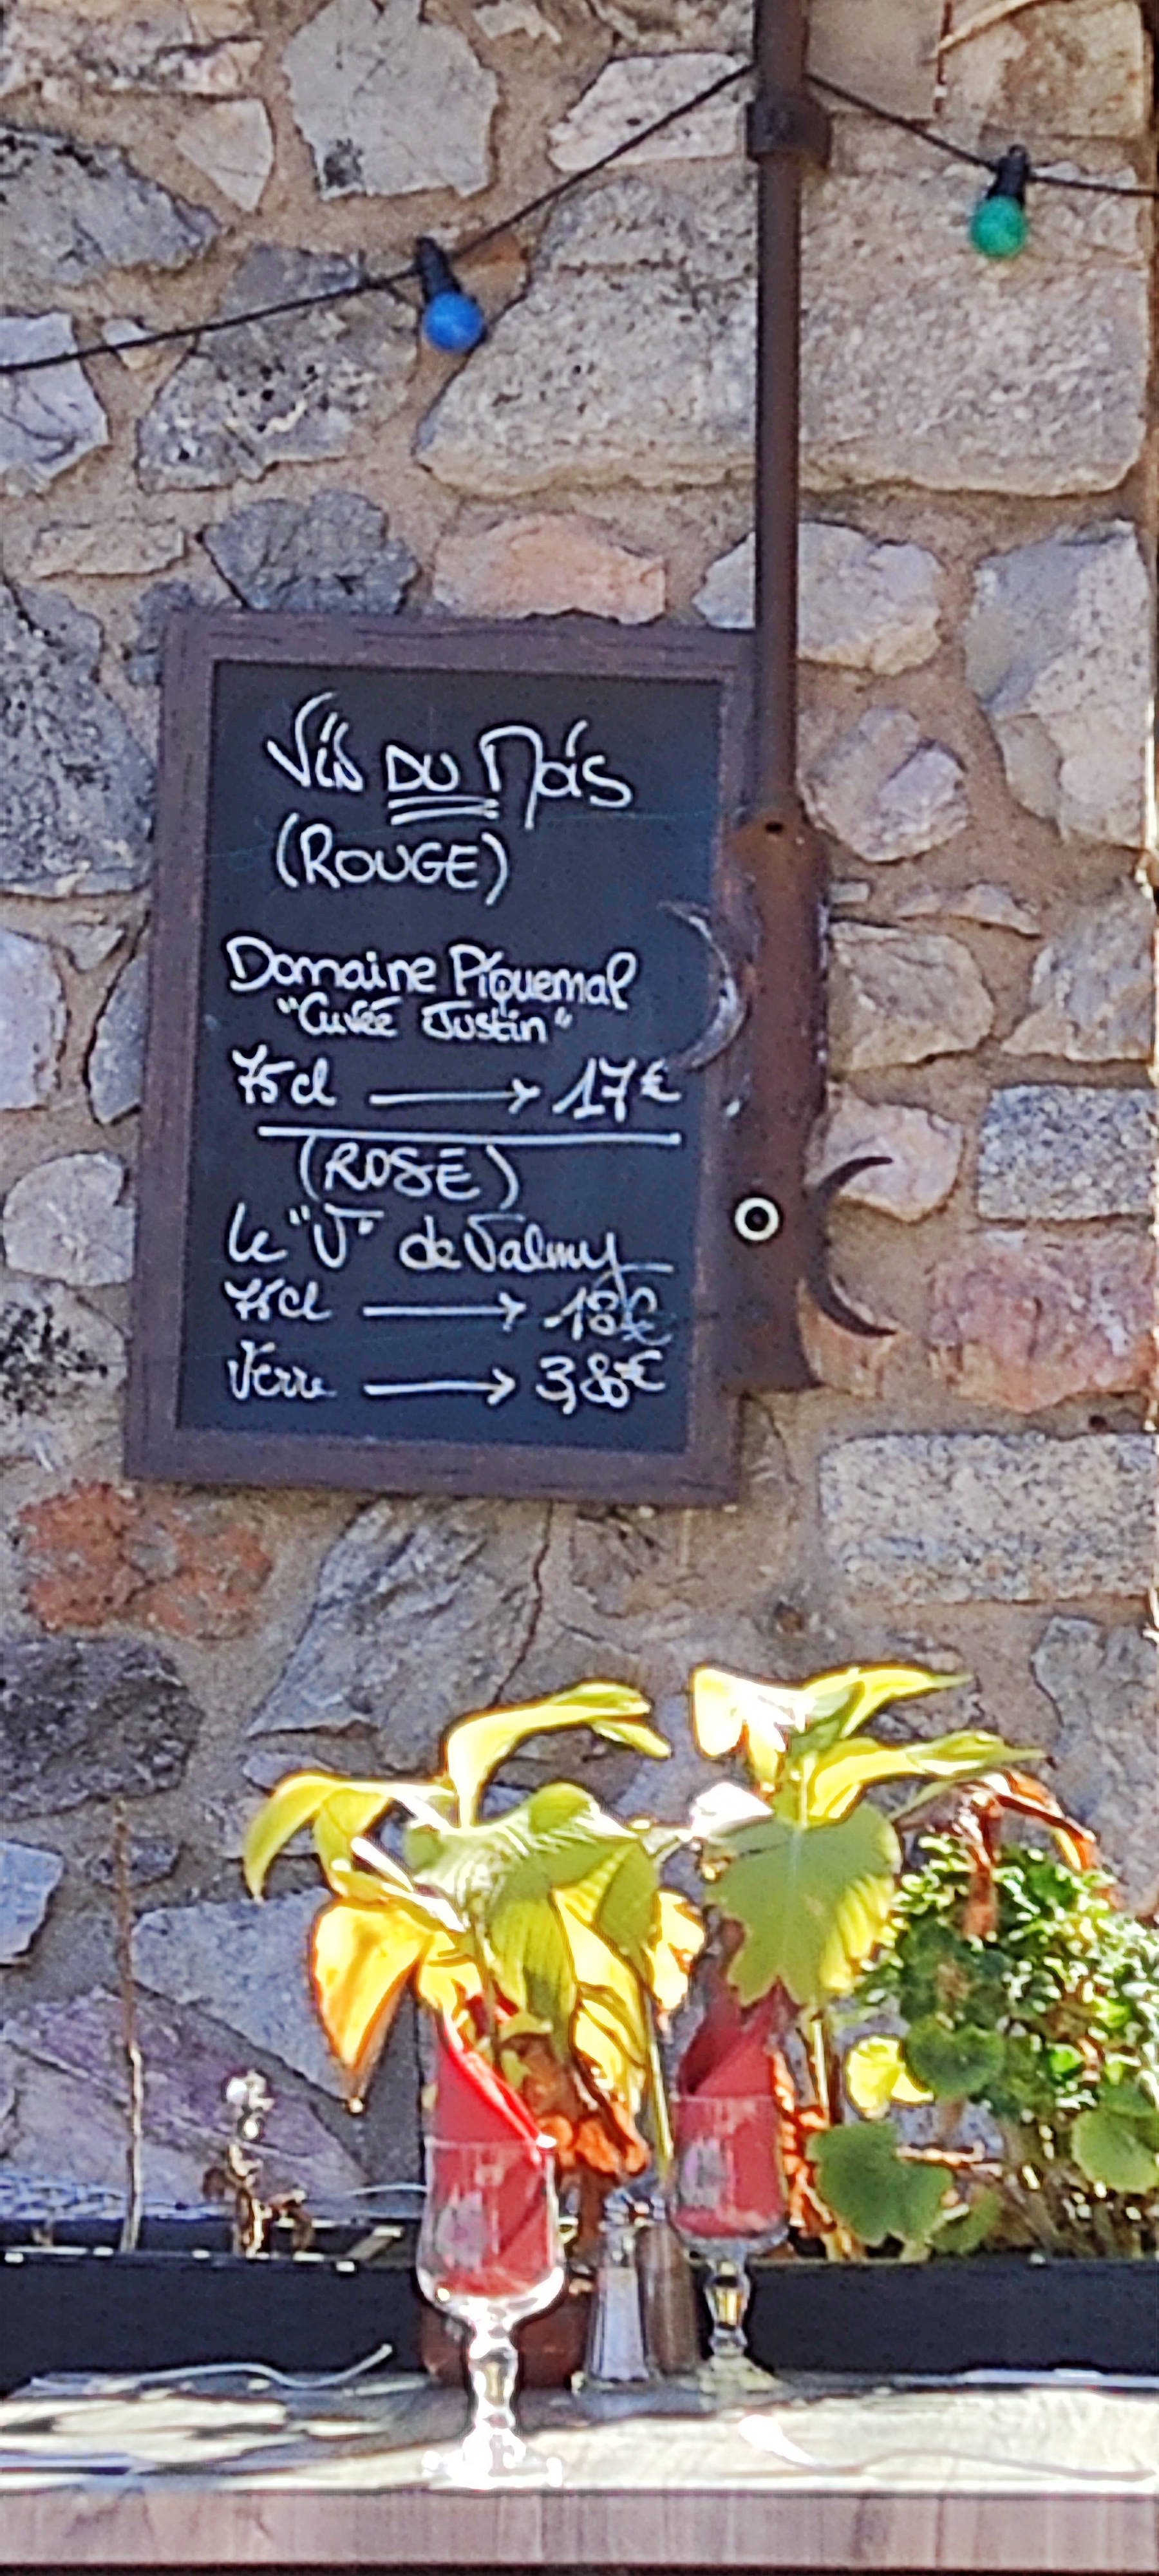 Vin DU Mois
(ROUGE)
Domaine Piquemal
"Cuvée Justin"
75cl → 17€
(ROSÉ)
Le "V" de Valmy
75cl → 18€
Verre → 3,80€